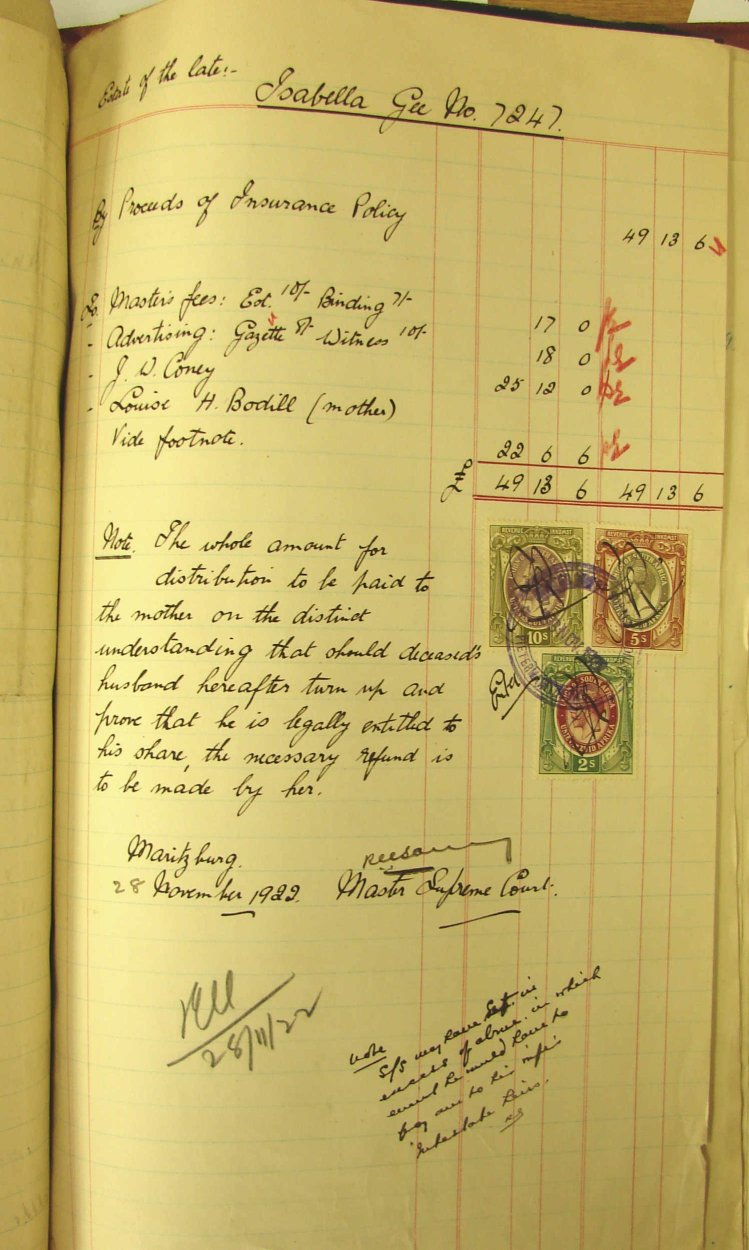 Estate of the late:-
Isabella Gee No. 7247.
By Proceeds of Insurance Policy 49 13 6
To. Master's fees: Est. 10/- Binding 7/- 17 0
- Advertising: Gazette 8/- Witness 10/- 18 0
- J. W. Coney 25 12 0
- Louise H. Bodill (mother)
Vide footnote. 22 6 6
£ 49 13 6 49 13 6
Note. The whole amount for
distribution to be paid to
the mother on the distinct
understanding that should deceased's
husband hereafter turn up and
prove that he is legally entitled to
his share, the necessary refund is
to be made by her.
REVENUE INKOMST
10s
REVENUE INKOMST
5s
REVENUE INKOMST
SOUTH AFRICA
2s
Maritzburg.
28 November 1922. Master Supreme Court.
28/11/22
Note
S/S may have Est. in
excess of above in which
event he would have to
pay over to his wife's
intestate heirs.